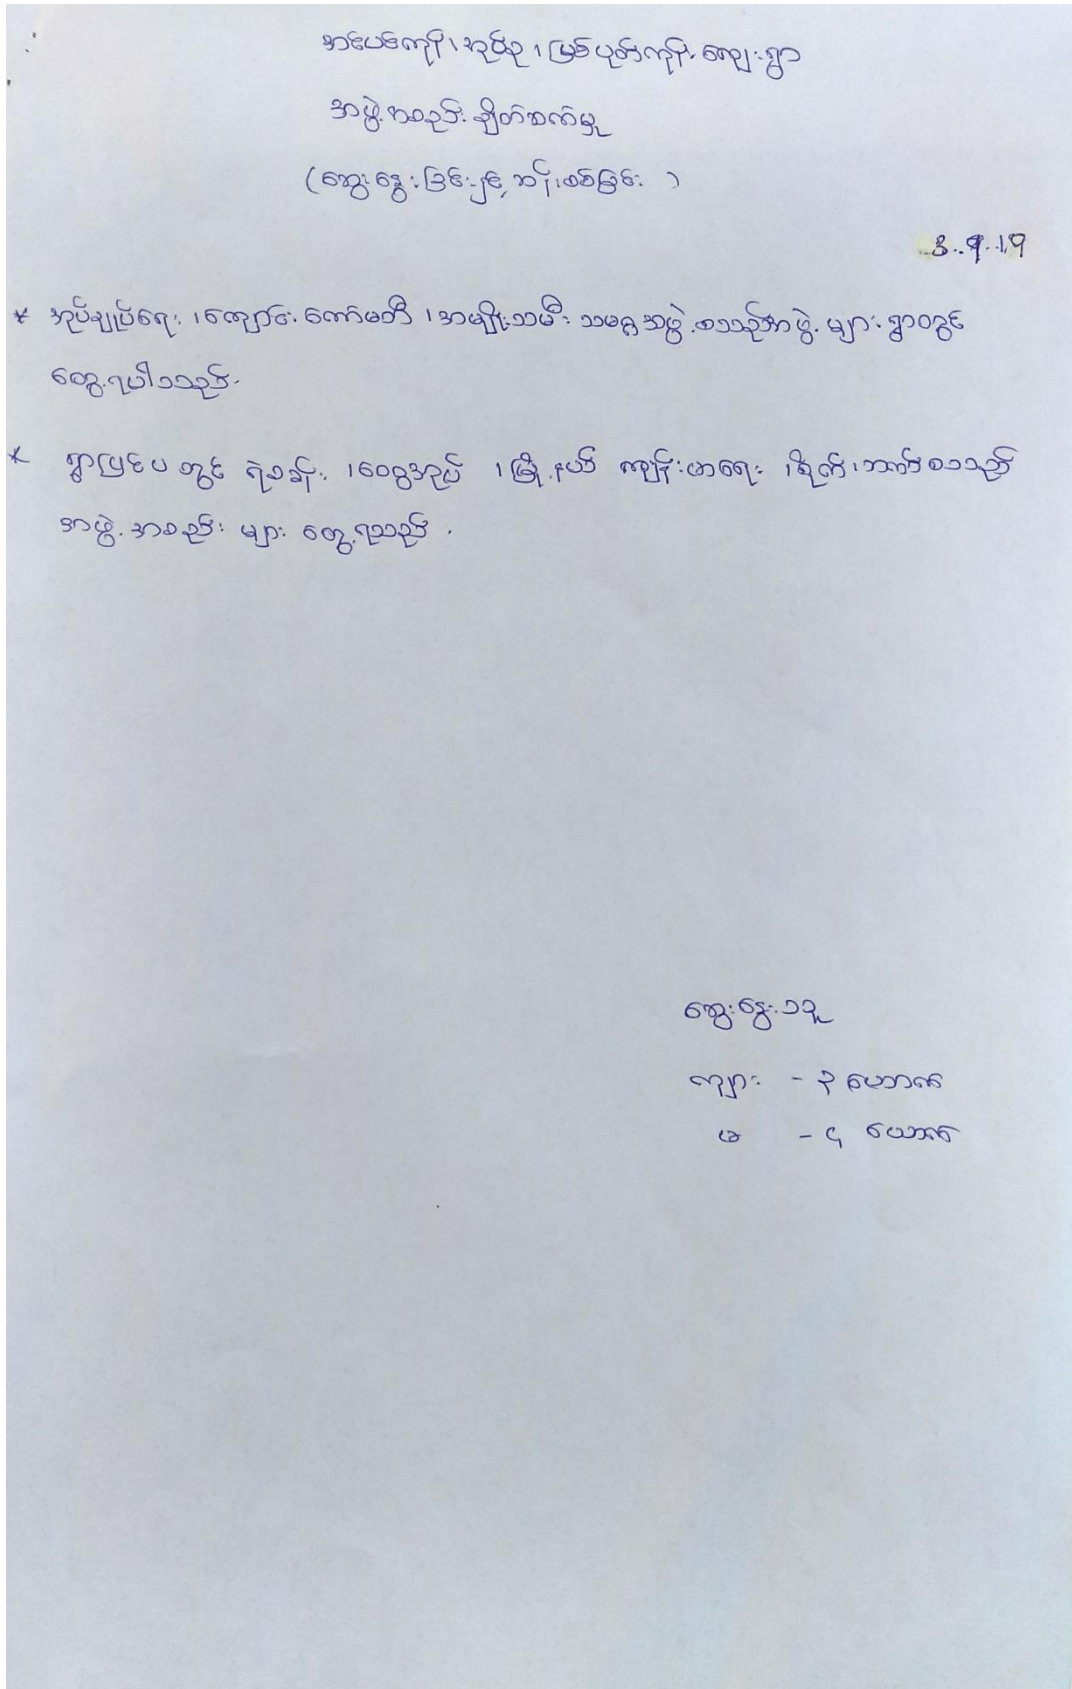 အင်ပင်ကုန်း၊ အုပ်စု၊ မြစ်ပုတ်ကုန်း ကျေးရွာ
အဖွဲ့အစည်း ချိတ်ဆက်မှု
(ဆွေးနွေးခြင်းနှင့် ဆန်းစစ်ခြင်း)
3.9.19
* အုပ်ချုပ်ရေး၊ ကျောင်းကော်မတီ၊ အမျိုးသမီး သမဂ္ဂအဖွဲ့ စသည့်အဖွဲ့များ ရွာတွင်
တွေ့ရပါသည်။
* ရွာပြင်ပတွင် ရဲစခန်း၊ ငွေအုပ်၊ မြို့နယ် ကျန်းမာရေး၊ စိုက်၊ ဘဏ် စသည့်
အဖွဲ့အစည်းများ တွေ့ရသည်။
ဆွေးနွေးသူ
ကျား - ၃ ယောက်
မ - ၄ ယောက်